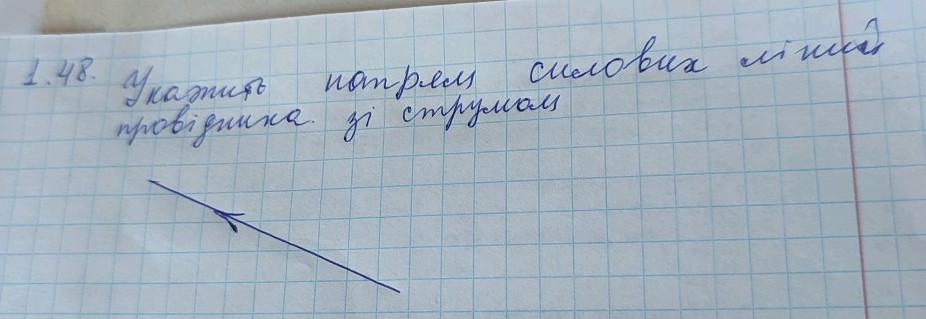 1.48. Укажить напрям силових ліній
провідника. зі струмом